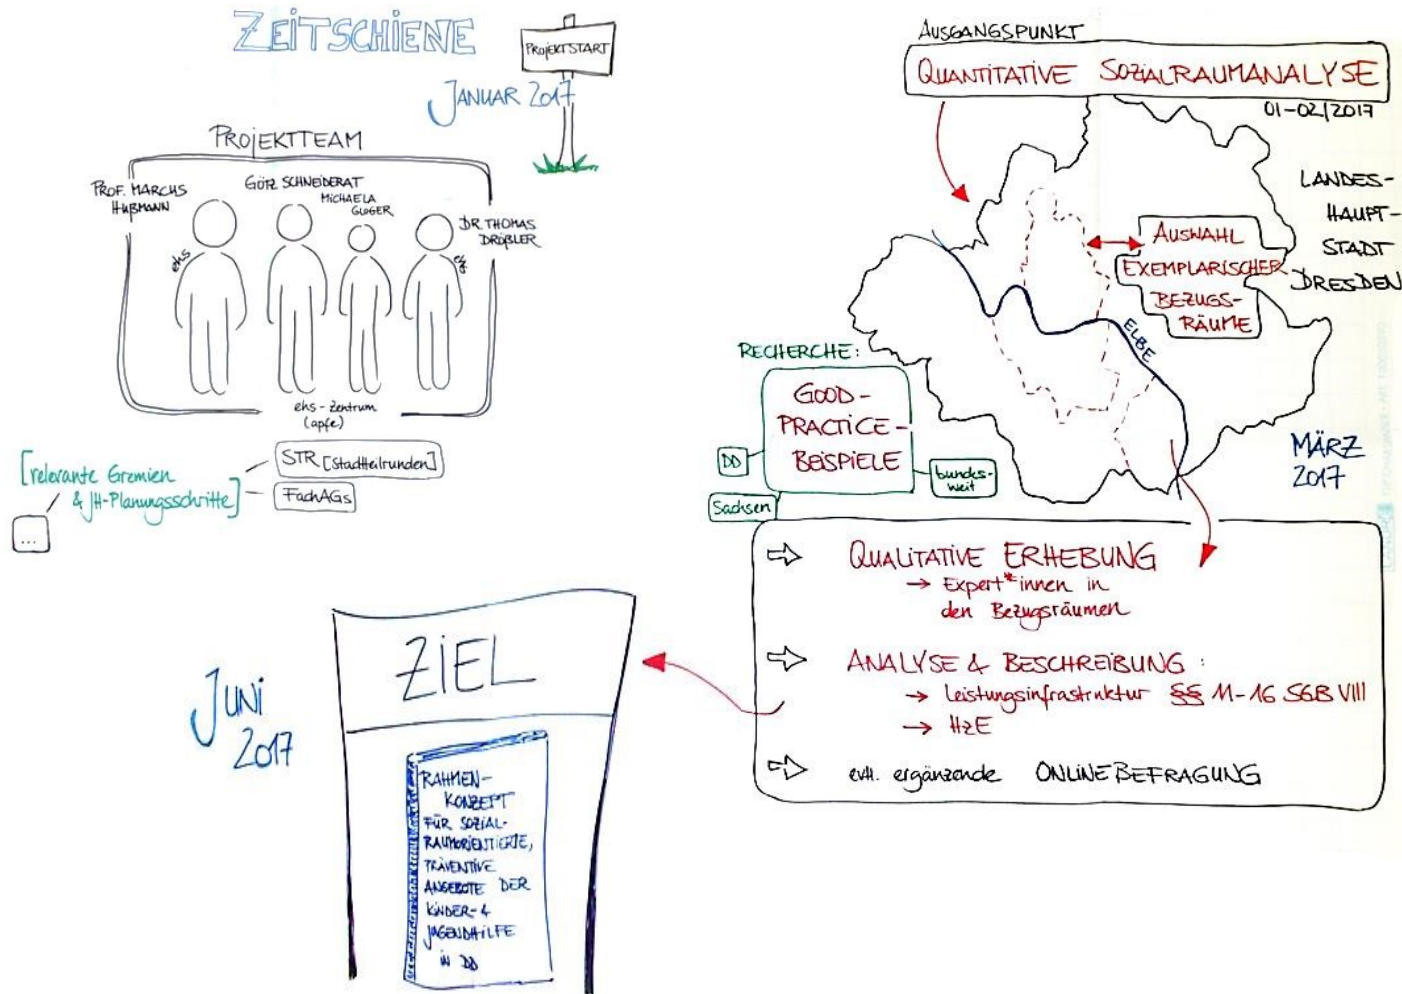 ZEITSCHIENE
PROJEKTSTART
JANUAR 2017
PROJEKTTEAM
PROF. MARCUS
HUßMANN
GÖTZ SCHNEIDERAT
MICHAELA
GLOGER
DR. THOMAS
DRÖßLER
ehs
ehs
ehs-Zentrum
(apfe)
[relevante Gremien
& JH-Planungsschritte]
STR [Stadtteilrunden]
FachAGs
...
AUSGANGSPUNKT
QUANTITATIVE SOZIALRAUMANALYSE
01-02/2017
LANDES-
HAUPT-
STADT
DRESDEN
AUSWAHL
EXEMPLARISCHER
BEZUGS-
RÄUME
ELBE
RECHERCHE:
GOOD-
PRACTICE-
BEISPIELE
DD
Sachsen
bundes-
weit
MÄRZ
2017
QUALITATIVE ERHEBUNG
→ Expert*innen in
den Bezugsräumen
ANALYSE & BESCHREIBUNG:
→ Leistungsinfrastruktur §§ 11-16 SGB VIII
→ HzE
evtl. ergänzende ONLINEBEFRAGUNG
JUNI
2017
ZIEL
RAHMEN-
KONZEPT
FÜR SOZIAL-
RAUMORIENTIERTE,
PRÄVENTIVE
ANGEBOTE DER
KINDER- &
JUGENDHILFE
IN DD